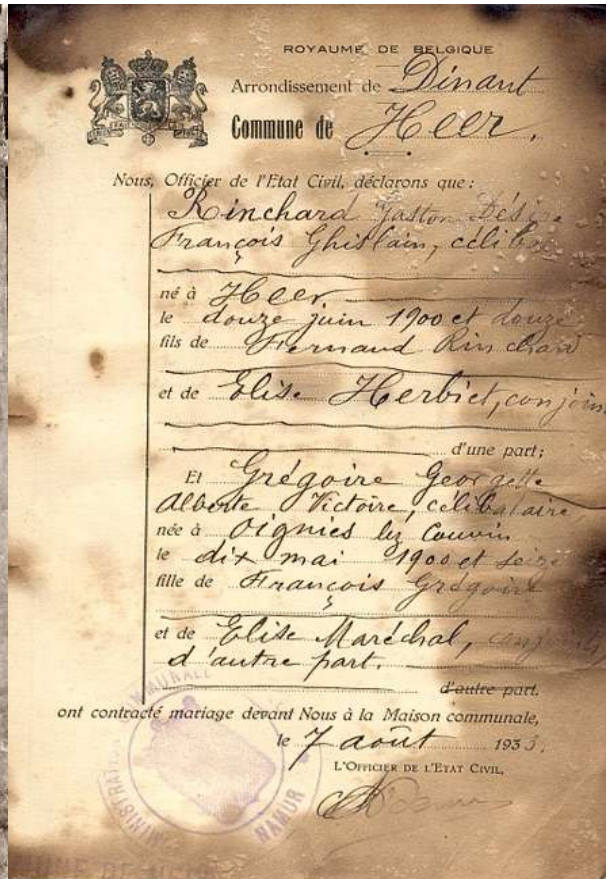 ROYAUME DE BELGIQUE
Arrondissement de Dinant
Commune de Heer.
Nous, Officier de l'Etat Civil, déclarons que :
Rinchard Gaston Désiré
François Ghislain, céliba
né à Heer
le douze juin 1900 et douze
fils de Fernand Rinchard
et de Elise Herbiet, conjoin
d'une part;
Et Grégoire Georgette
Alberte Victoire, célibataire,
née à Oignies lez Couvin
le dix mai 1900 et seize
fille de François Grégoire
et de Elise Maréchal, conjoints,
d'autre part.
d'autre part.
ont contracté mariage devant Nous à la Maison communale,
le 7 août 1933.
L'OFFICIER DE L'ETAT CIVIL,
NAMUR